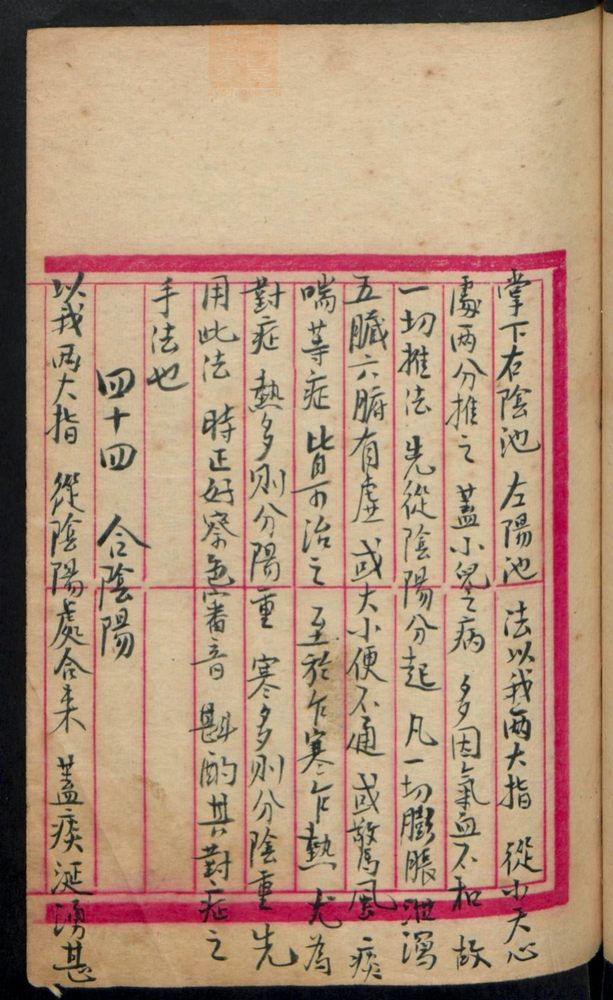 掌下右陰池 左陽池 法以我兩大指 從小天心
處兩分推之 蓋小兒之病 多因氣血不和 故
一切推法 先從陰陽分起 凡一切膨脹泄瀉
五臟六腑有虛 或大小便不通 或驚風 痰
喘等症 皆可治之 至於乍寒乍熱 尤為
對症 熱多則分陽重 寒多則分陰重 先
用此法 時正好察色審音 斟酌其對症之
手法也
四十四 合陰陽
以我兩大指 從陰陽處合來 蓋痰涎湧甚